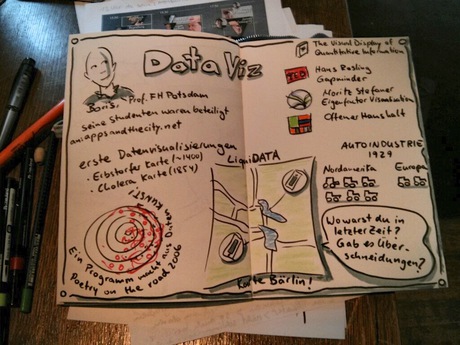 Data Viz
Boris. Prof. FH Potsdam
seine Studenten waren beteiligt
an: appsandthecity.net
erste Datenvisualisierungen
• Ebstorfer Karte (~1400)
• Cholera Karte (1854)
Ein Programm macht aus Daten KUNST
Poetry on the road 2006
The Visual Display of
Quantitative Information
TED
Hans Rosling
Gapminder
Moritz Stefaner
Eigenfactor Visualisation
Offener Haushalt
LiquiDATA
Karte Bärlin!
AUTOINDUSTRIE
1929
Nordamerika
Europa
Wo warst du in
letzter Zeit?
Gab es Über-
schneidungen?